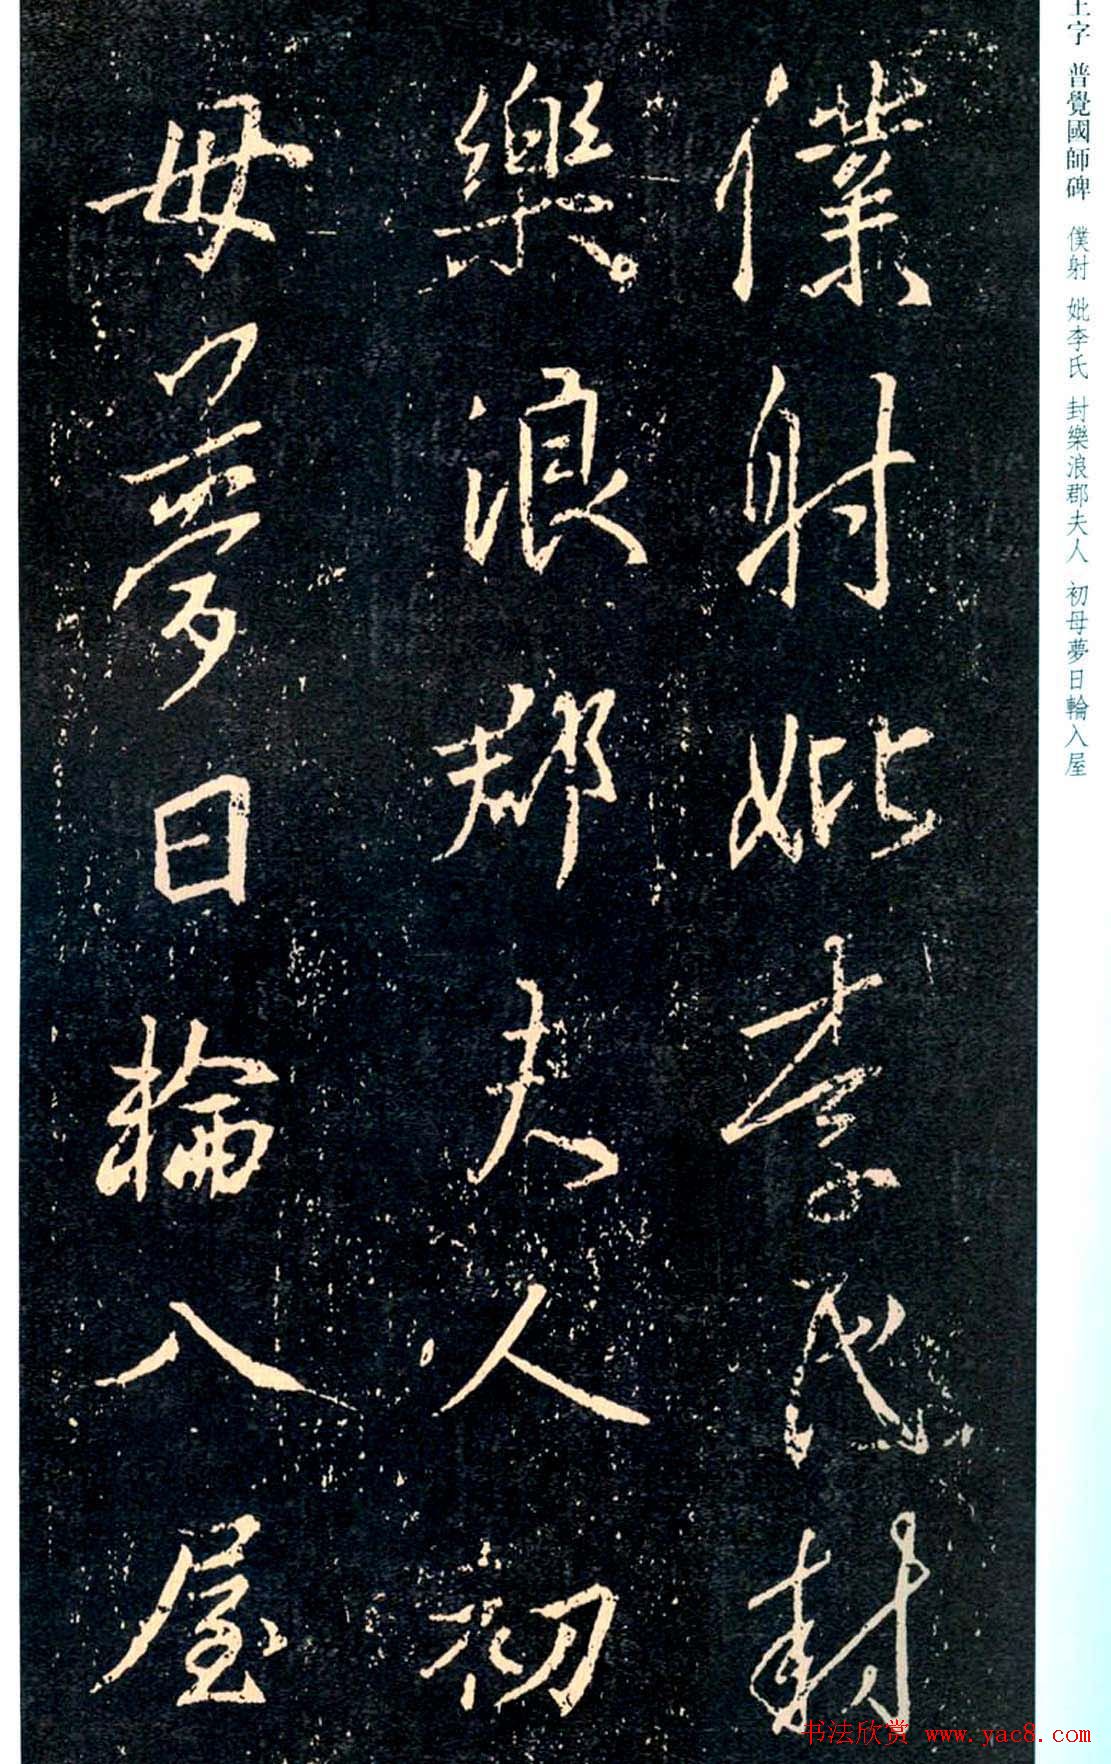 僕射妣李氏封
樂浪郡夫人初
母夢日輪入屋
王字 普覺國師碑 僕射 妣李氏 封樂浪郡夫人 初母夢日輪入屋
书法欣赏 www.yac8.com